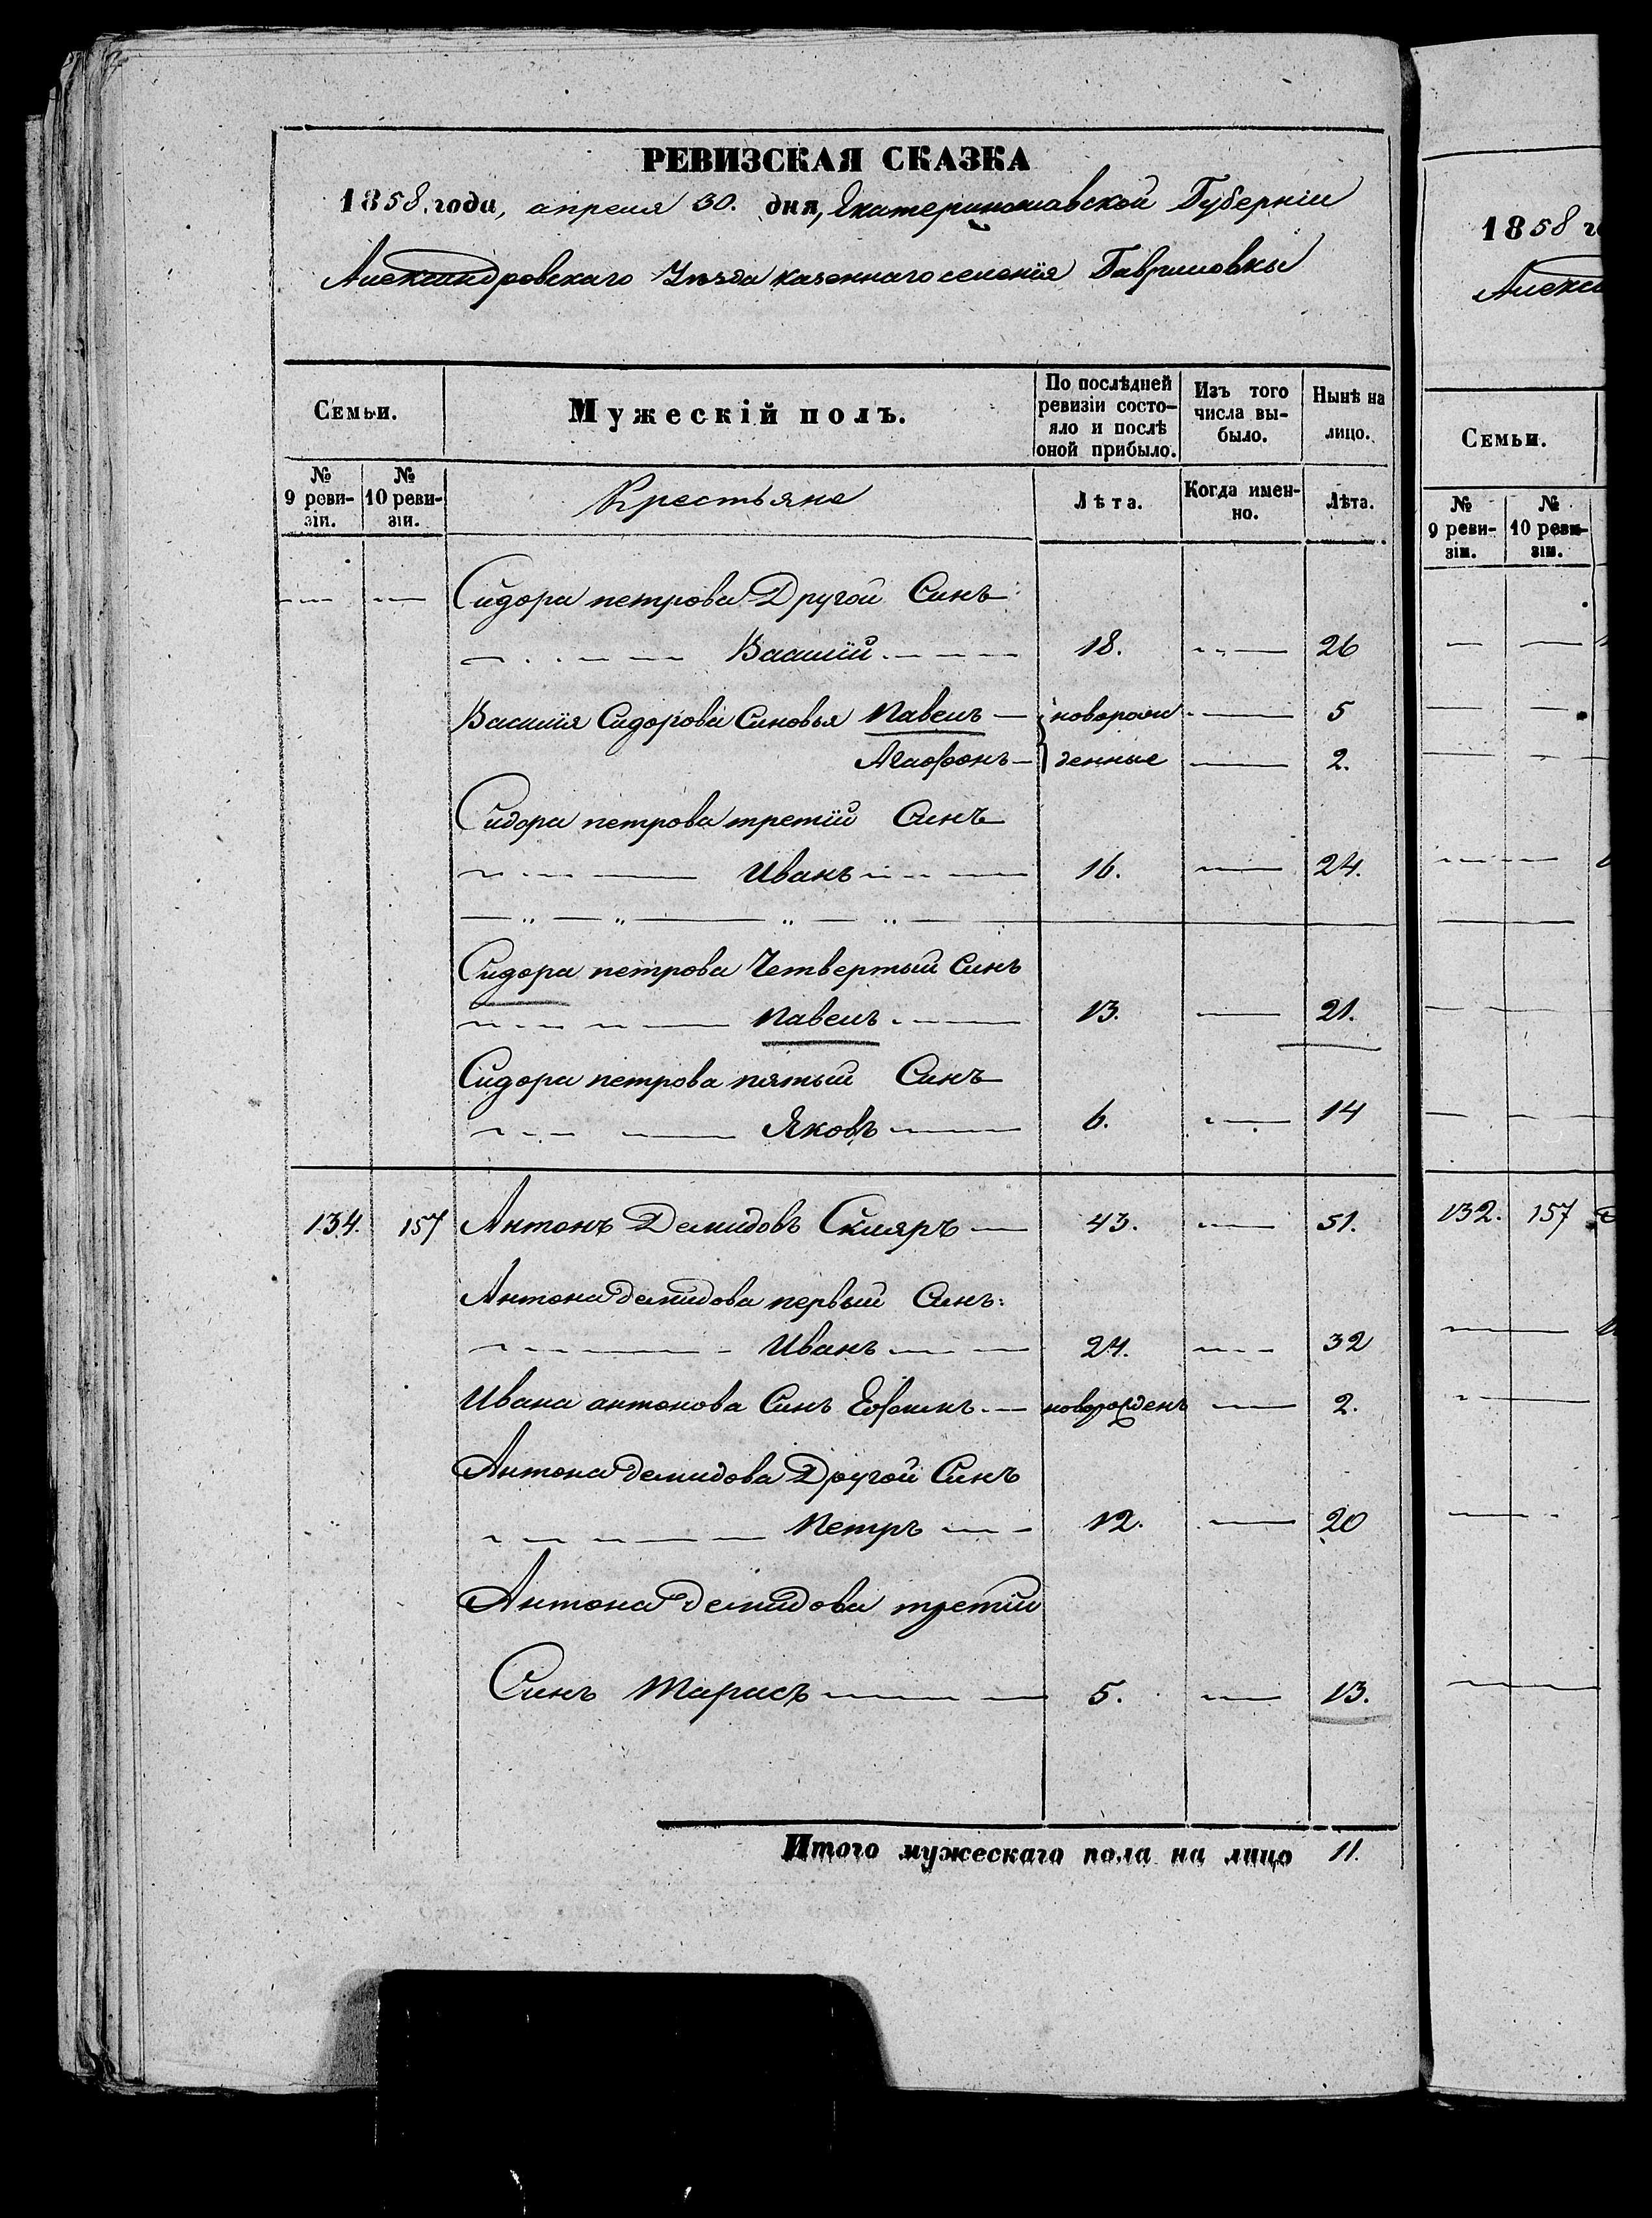 РЕВИЗСКАЯ СКАЗКА
1858. года, апреля 30. дня, Екатеринославской Губерніи
Александровскаго Уѣзда казеннаго селенія Гавриловки
Семьи. Мужескій полъ. По послѣдней ревизіи состояло и послѣ оной прибыло. Изъ того числа выбыло. Нынѣ на лицо.
№ 9 ревизіи. № 10 ревизіи. Крестьяне Лѣта. Когда именно. Лѣта.
Сидора петрова Другой Синъ
Василій 18. 26
Василія Сидорова Синовья Павелъ новорож 5
Агафонъ денные 2.
Сидора петрова третій Синъ
Иванъ 16. 24.
Сидора петрова Четвертый Синъ
Павелъ 13. 21.
Сидора петрова пятый Синъ
Яковъ 6. 14
134. 157 Антонъ Демидовъ Скляръ 43. 51.
Антона Демидова первый Синъ:
Иванъ 24. 32
Ивана антонова Синъ Ефимъ новорожденъ 2.
Антона Демидова Другой Синъ
Петръ 12. 20
Антона Демидова третій
Синъ Тарасъ 5. 13.
Итого мужескаго пола на лицо 11.
1858
Семьи.
№ 9 ревизіи. № 10 ревизіи.
132. 157